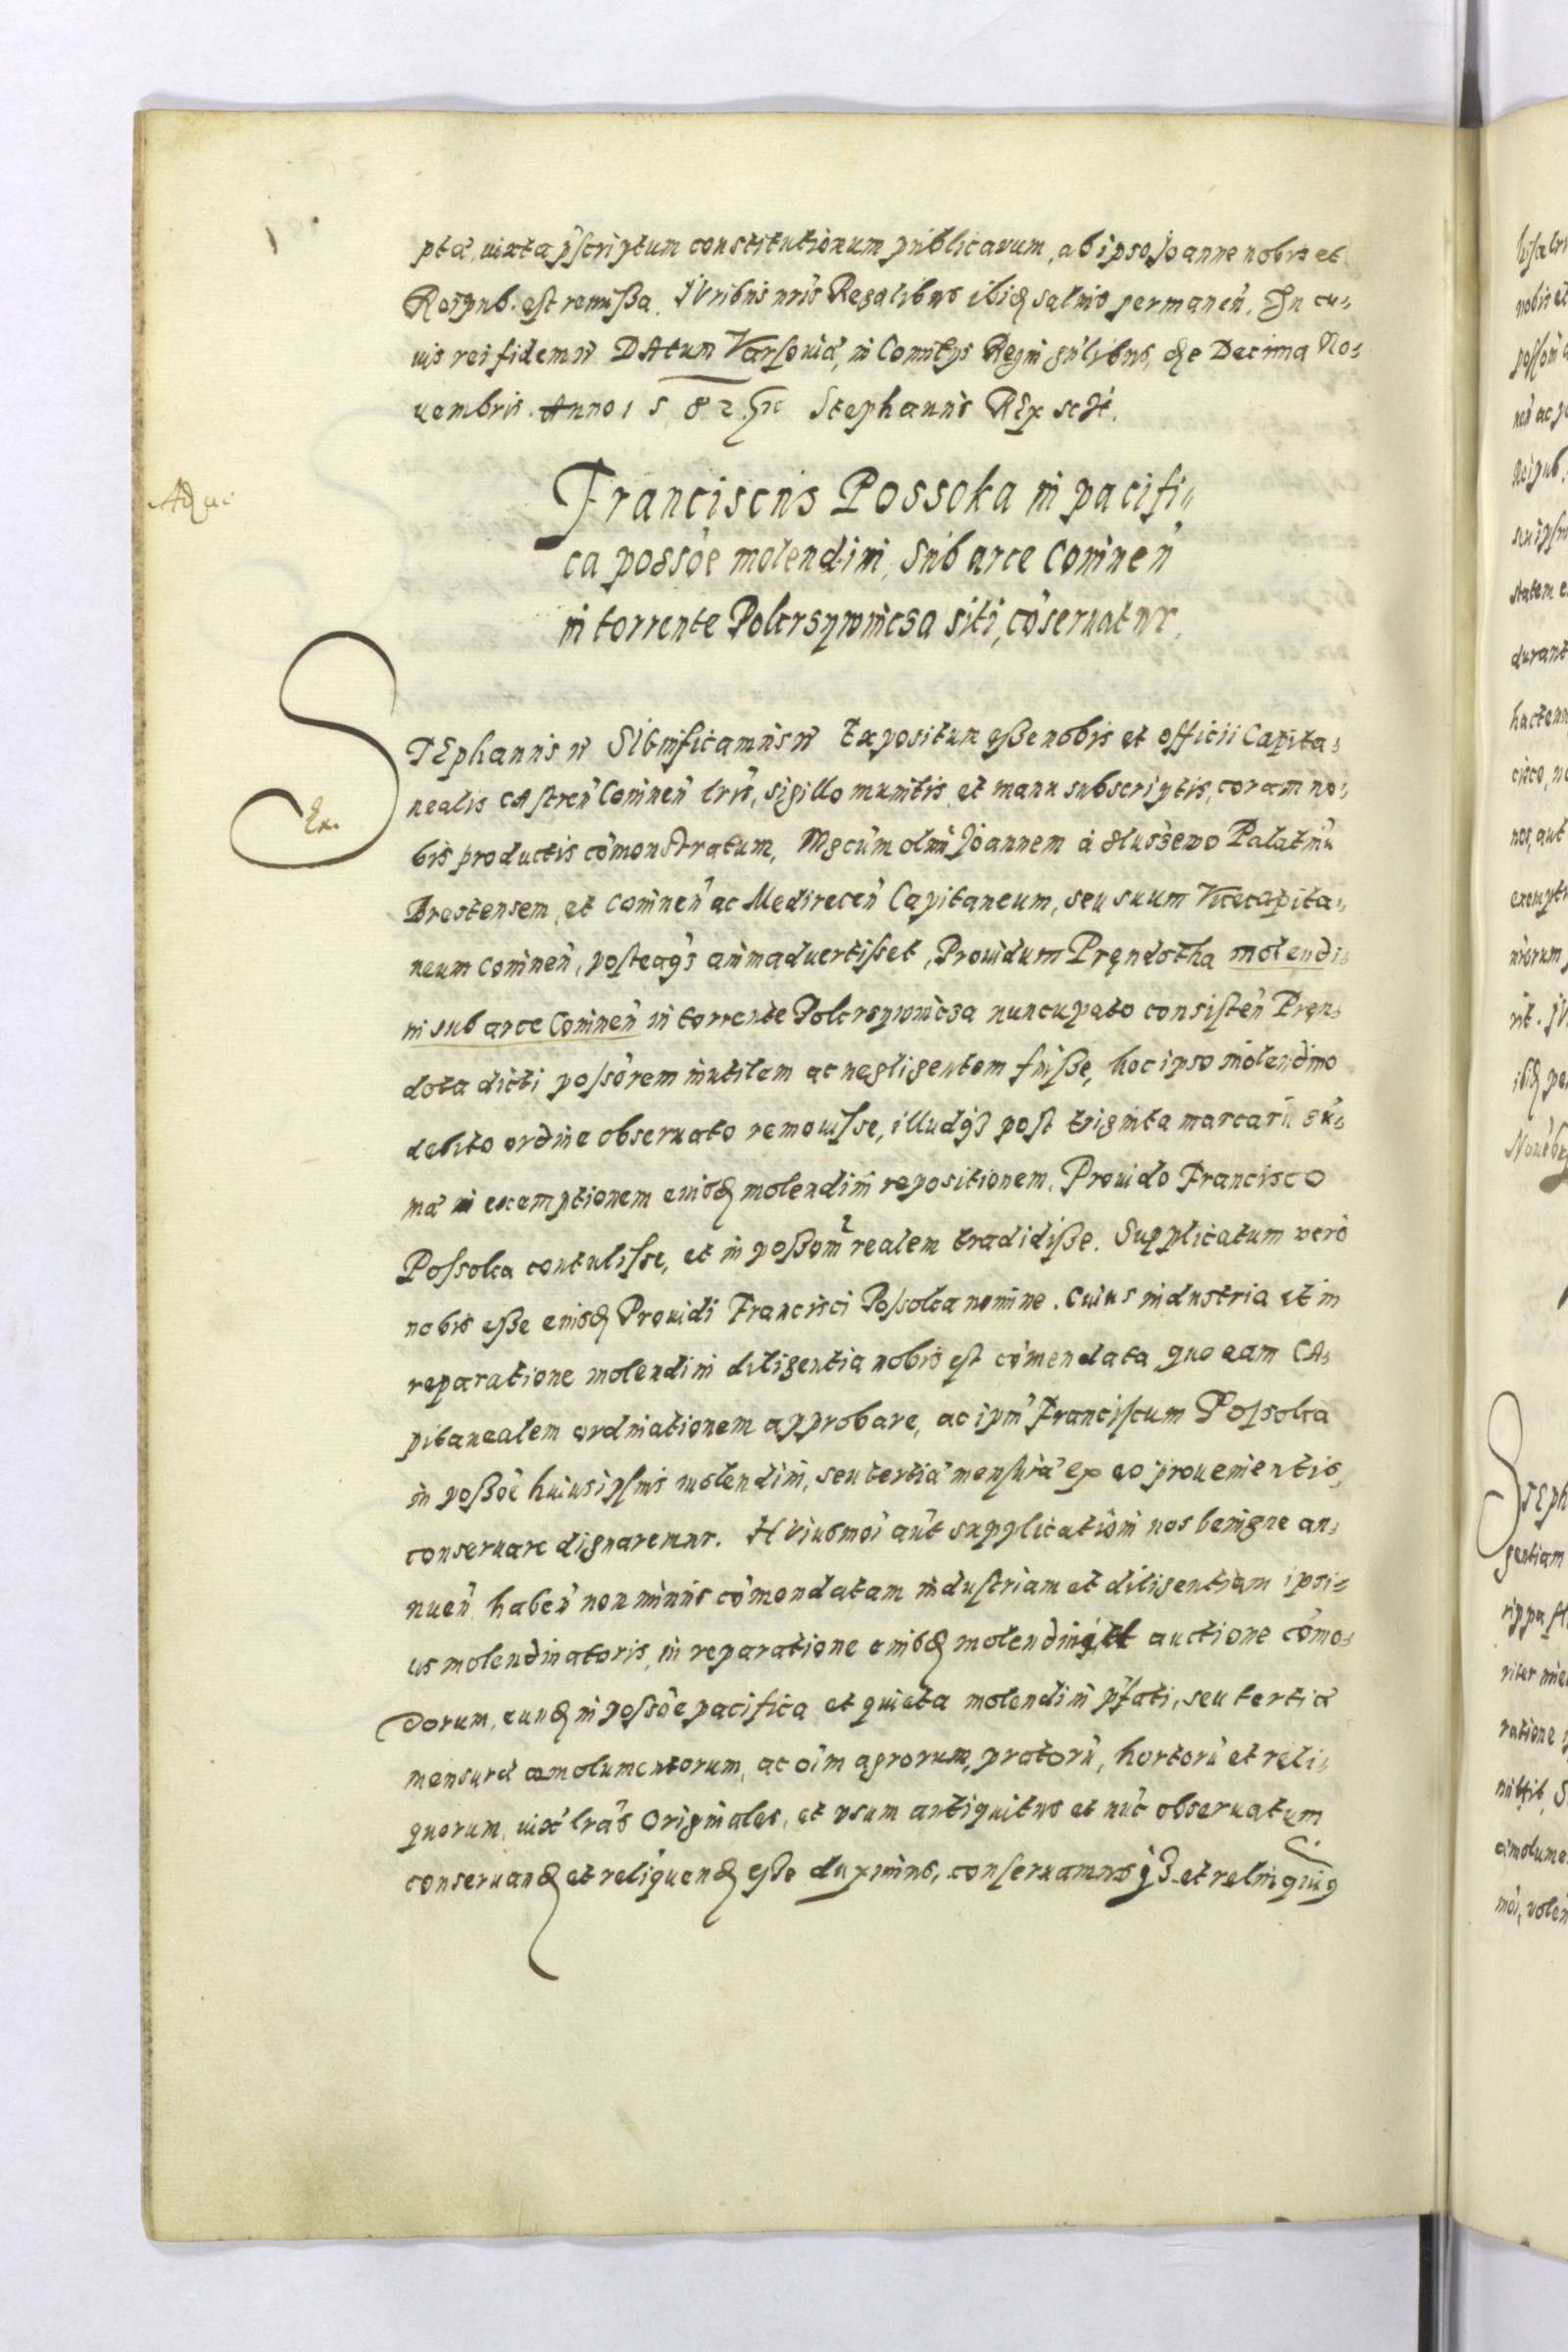 ptá, iuxta p̄scriptum constitutionum publicarum, ab ipso Joanne nobis et
Reipub. est remissa. IUribus nris Regalibus ibiq saluis permanen̄. In cu=
ius rei fidem DAtum Varsouiæ, in Comitijs Regni gn̄libus, die Decima No=
uembris. Anno 1582 Stephanus REx sc̄t.
Aquæ
Franciscus Possoka in pacifi=
ca possōe molendini, sub arce Coninen̄
in torrente Pokrzywnicza siti, cōseruatur.
STEphanus SIGnificamus Expositum esse nobis et officii Capita=
Ex.
nealis CAstren̄ Coninen̄ lr̄is, sigillo munitis et manu subscriptis, coram no=
bis productis cōmonstratum, Mgcūm olim Joannem à Sluszewo Palatinū
Brestensem, et Coninen̄ ac Medirecen̄ Capitaneum, seu suum Vicecapita=
neum Coninen̄, posteaq̄ animaduertisset, Prouidum Prendotha molendi=
ni sub arce Coninen̄ in torrente Pokrzywnicza nuncupato consisten̄ Pren=
dota dicti possōrem inutilem ac negligentem fuisse, hoc ipso molendino
debito ordine obseruato remouisse, illudq3 post triginta marcarū sū=
mæ in exemptionem eiusdē molendini repositionem, Prouido Francisco
Possolka contulisse, et in possom realem tradidisse. Supplicatum verò
nobis esse eiusdē Prouidi Francisci Possolka nomine. Cuius industria et in
reparatione molendini diligentia nobis est cōmendata quo eam CA=
pitanealem ordinationem approbare, ac ipm̄ Franciscum Possolka
in possōe huius ipsius molendini, seu tertiæ mensuræ ex eo prouenientis,
conseruare dignaremur. HUiusmōi aūt supplicationi nos benigne an=
nuen̄ haben̄ non minus cōmendatam industriam et diligentiam ipsi=
us molendinatoris, in reparatione eiusdē molendini, et auctione cōmo=
dorum, eundē in possōe pacifica et quieta molendini p̄fati, seu tertiæ
mensuræ emolumentorum, ac oīm agrorum, pratorū, hortorū et reli=
quorum, iuxta lr̄as Originales, et vsum antiquitus et nūc obseruatum
conseruandū et reliquendū esse duximus, conseruamusq3 et relinquim9